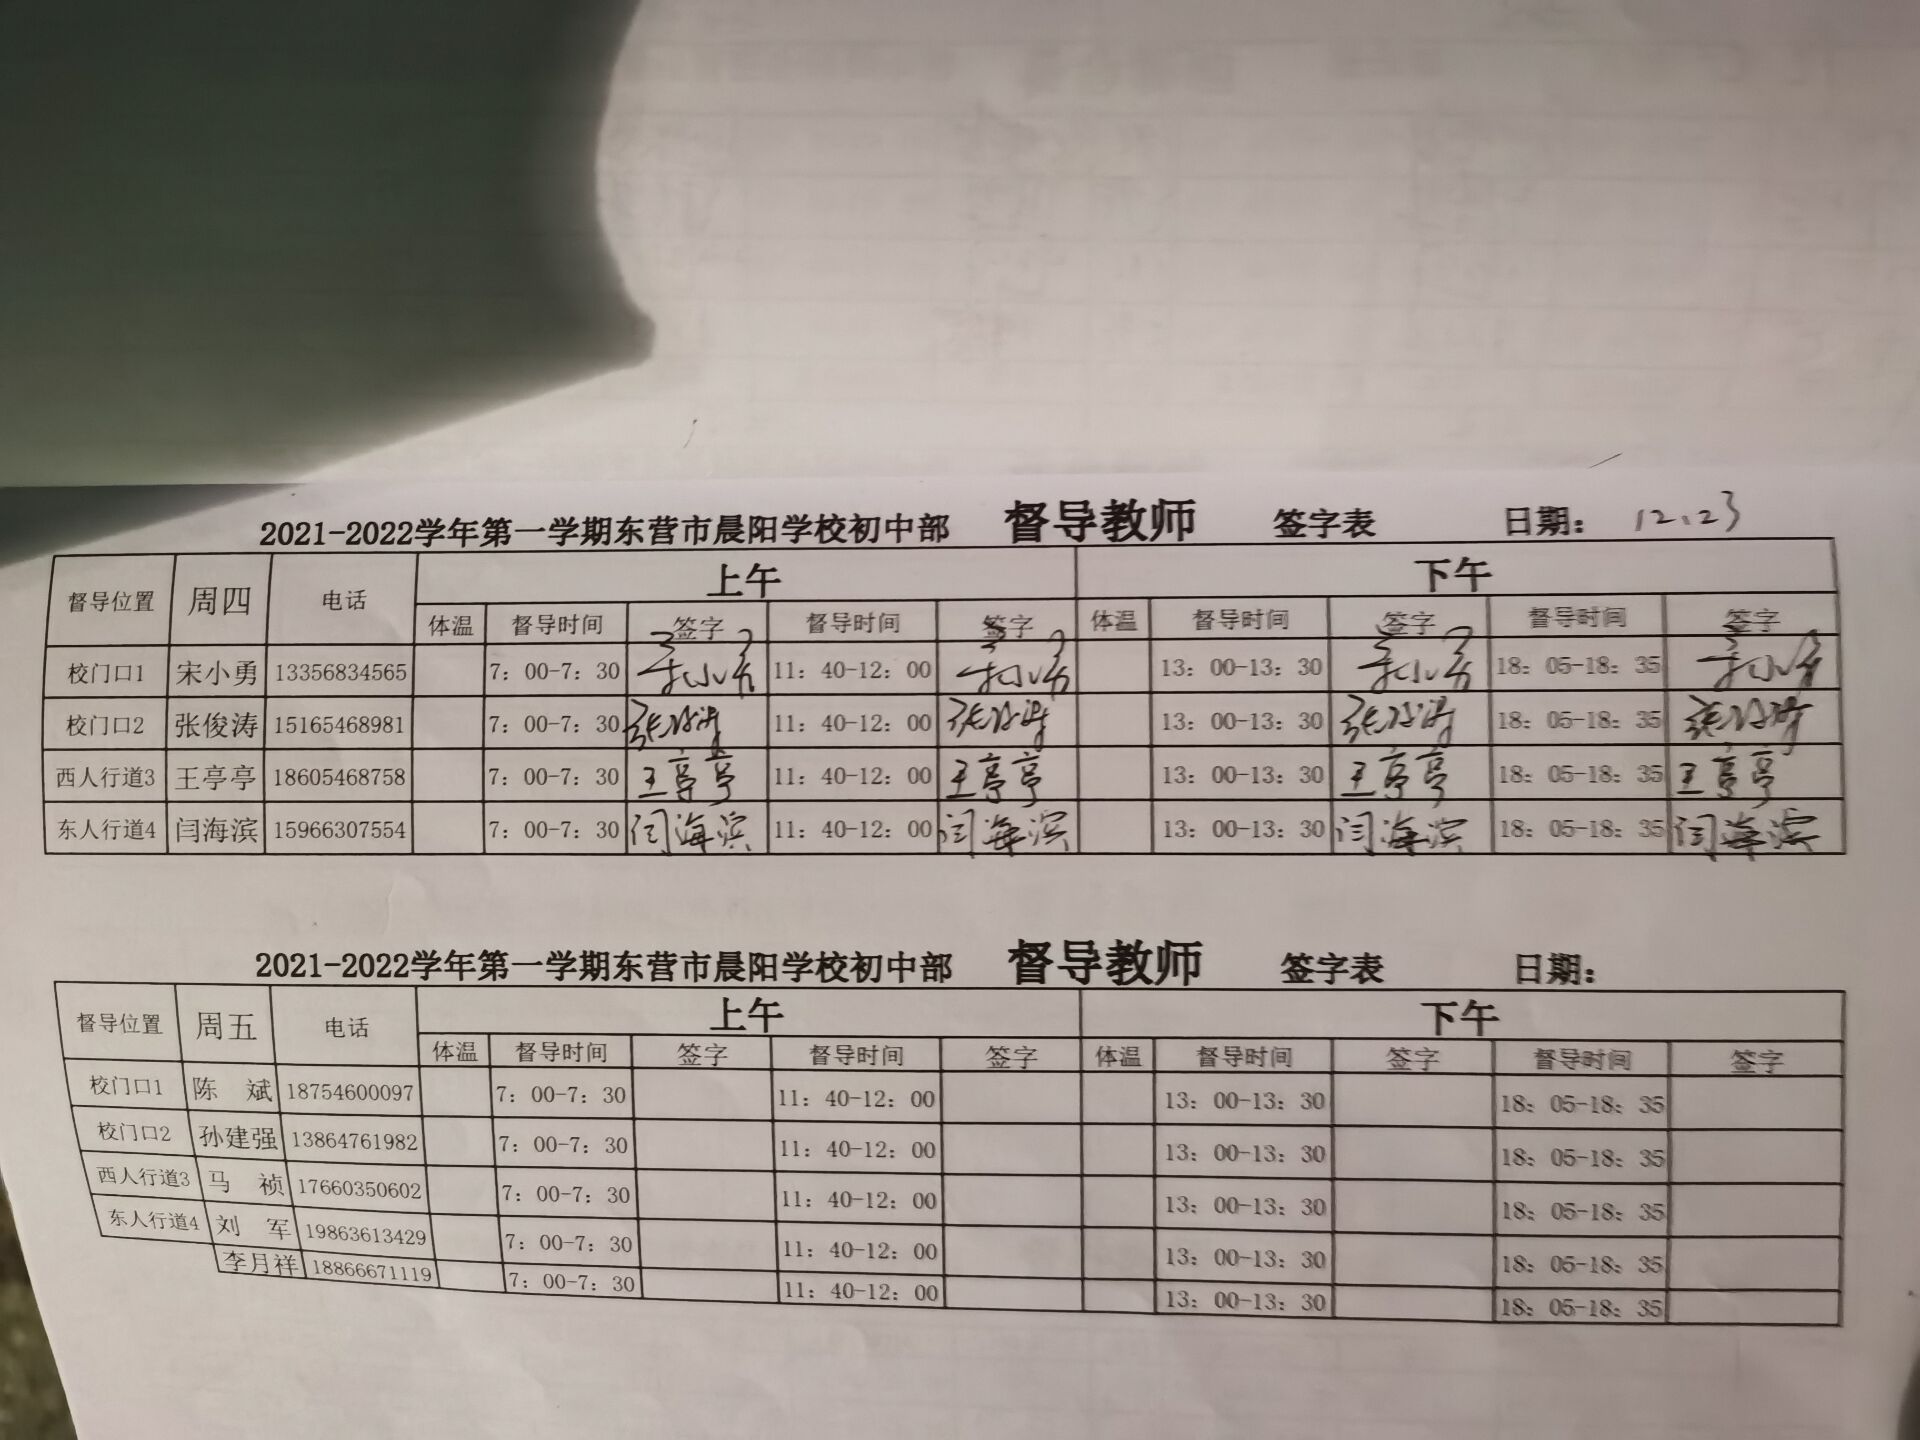 2021-2022学年第一学期东营市晨阳学校初中部 督导教师 签字表 日期： 12.23
督导位置 周四 电话 上午 下午
体温 督导时间 签字 督导时间 签字 体温 督导时间 签字 督导时间 签字
校门口1 宋小勇 13356834565 7：00-7：30 宋小勇 11：40-12：00 宋小勇 13：00-13：30 宋小勇 18：05-18：35 宋小勇
校门口2 张俊涛 15165468981 7：00-7：30 张俊涛 11：40-12：00 张俊涛 13：00-13：30 张俊涛 18：05-18：35 张俊涛
西人行道3 王亭亭 18605468758 7：00-7：30 王亭亭 11：40-12：00 王亭亭 13：00-13：30 王亭亭 18：05-18：35 王亭亭
东人行道4 闫海滨 15966307554 7：00-7：30 闫海滨 11：40-12：00 闫海滨 13：00-13：30 闫海滨 18：05-18：35 闫海滨
2021-2022学年第一学期东营市晨阳学校初中部 督导教师 签字表 日期：
督导位置 周五 电话 上午 下午
体温 督导时间 签字 督导时间 签字 体温 督导时间 签字 督导时间 签字
校门口1 陈 斌 18754600097 7：00-7：30 11：40-12：00 13：00-13：30 18：05-18：35
校门口2 孙建强 13864761982 7：00-7：30 11：40-12：00 13：00-13：30 18：05-18：35
西人行道3 马 祯 17660350602 7：00-7：30 11：40-12：00 13：00-13：30 18：05-18：35
东人行道4 刘 军 19863613429 7：00-7：30 11：40-12：00 13：00-13：30 18：05-18：35
李月祥 18866671119 7：00-7：30 11：40-12：00 13：00-13：30 18：05-18：35